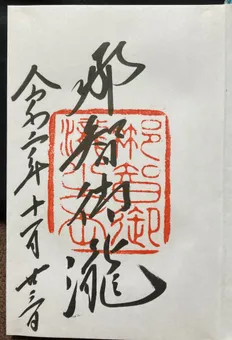 那智御瀧
令和六年十一月廿三日